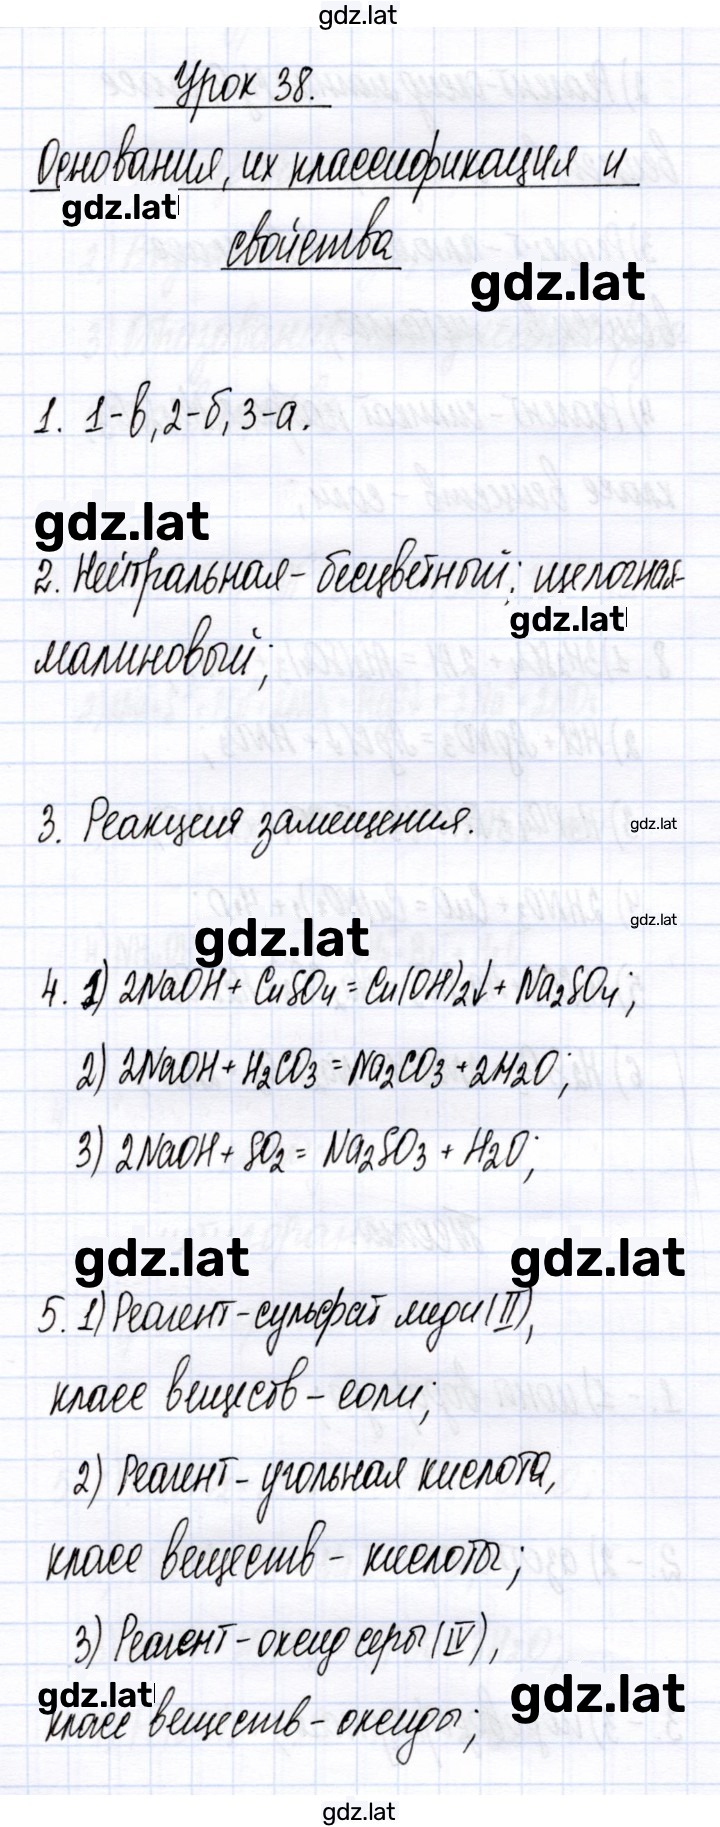 gdz.lat
Урок 38.
Основания, их классификация и
gdz.lat
свойства
gdz.lat
1. 1-в, 2-б, 3-а.
gdz.lat
2. Нейтральная - бесцветный; щелочная-
gdz.lat
малиновый;
3. Реакция замещения.
gdz.lat
gdz.lat
gdz.lat
4. 1) 2NaOH + CuSO4 = Cu(OH)2↓ + Na2SO4;
2) 2NaOH + H2CO3 = Na2CO3 + 2H2O;
3) 2NaOH + SO2 = Na2SO3 + H2O;
gdz.lat
gdz.lat
5. 1) Реагент - сульфат меди (II),
класс веществ - соли;
2) Реагент - угольная кислота,
класс веществ - кислоты;
3) Реагент - оксид серы (IV),
gdz.lat
gdz.lat
класс веществ - оксиды;
gdz.lat